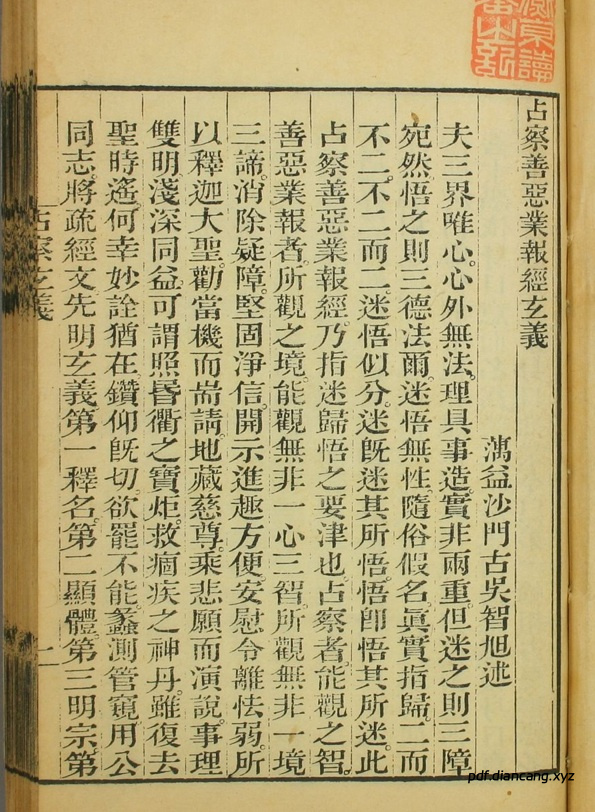 占察善惡業報經玄義
蕅益沙門古吳智旭述
夫三界唯心。心外無法。理具事造。實非兩重。但迷之則三障
宛然悟之則三德法爾。迷悟無性。隨俗假名。眞實指歸。二而
不二。不二而二。迷悟似分。迷旣迷其所悟。悟卽悟其所迷。此
占察善惡業報經。乃指迷歸悟之要津也。占察者。能觀之智。
善惡業報者。所觀之境。能觀無非一心三智。所觀無非一境
三諦。消除疑障。堅固淨信。開示進趣方便。安慰令離怯弱。所
以釋迦大聖。勸當機而耑請。地藏慈尊。乘悲願而演說。事理
雙明。淺深同益。可謂照昏衢之寶炬。救痼疾之神丹。雖復去
聖時遙。何幸妙詮猶在。鑽仰旣切。欲罷不能。蠡測管窺。用公
同志。將疏經文。先明玄義。第一釋名。第二顯體。第三明宗。第
占察玄義
一
pdf.diancang.xyz